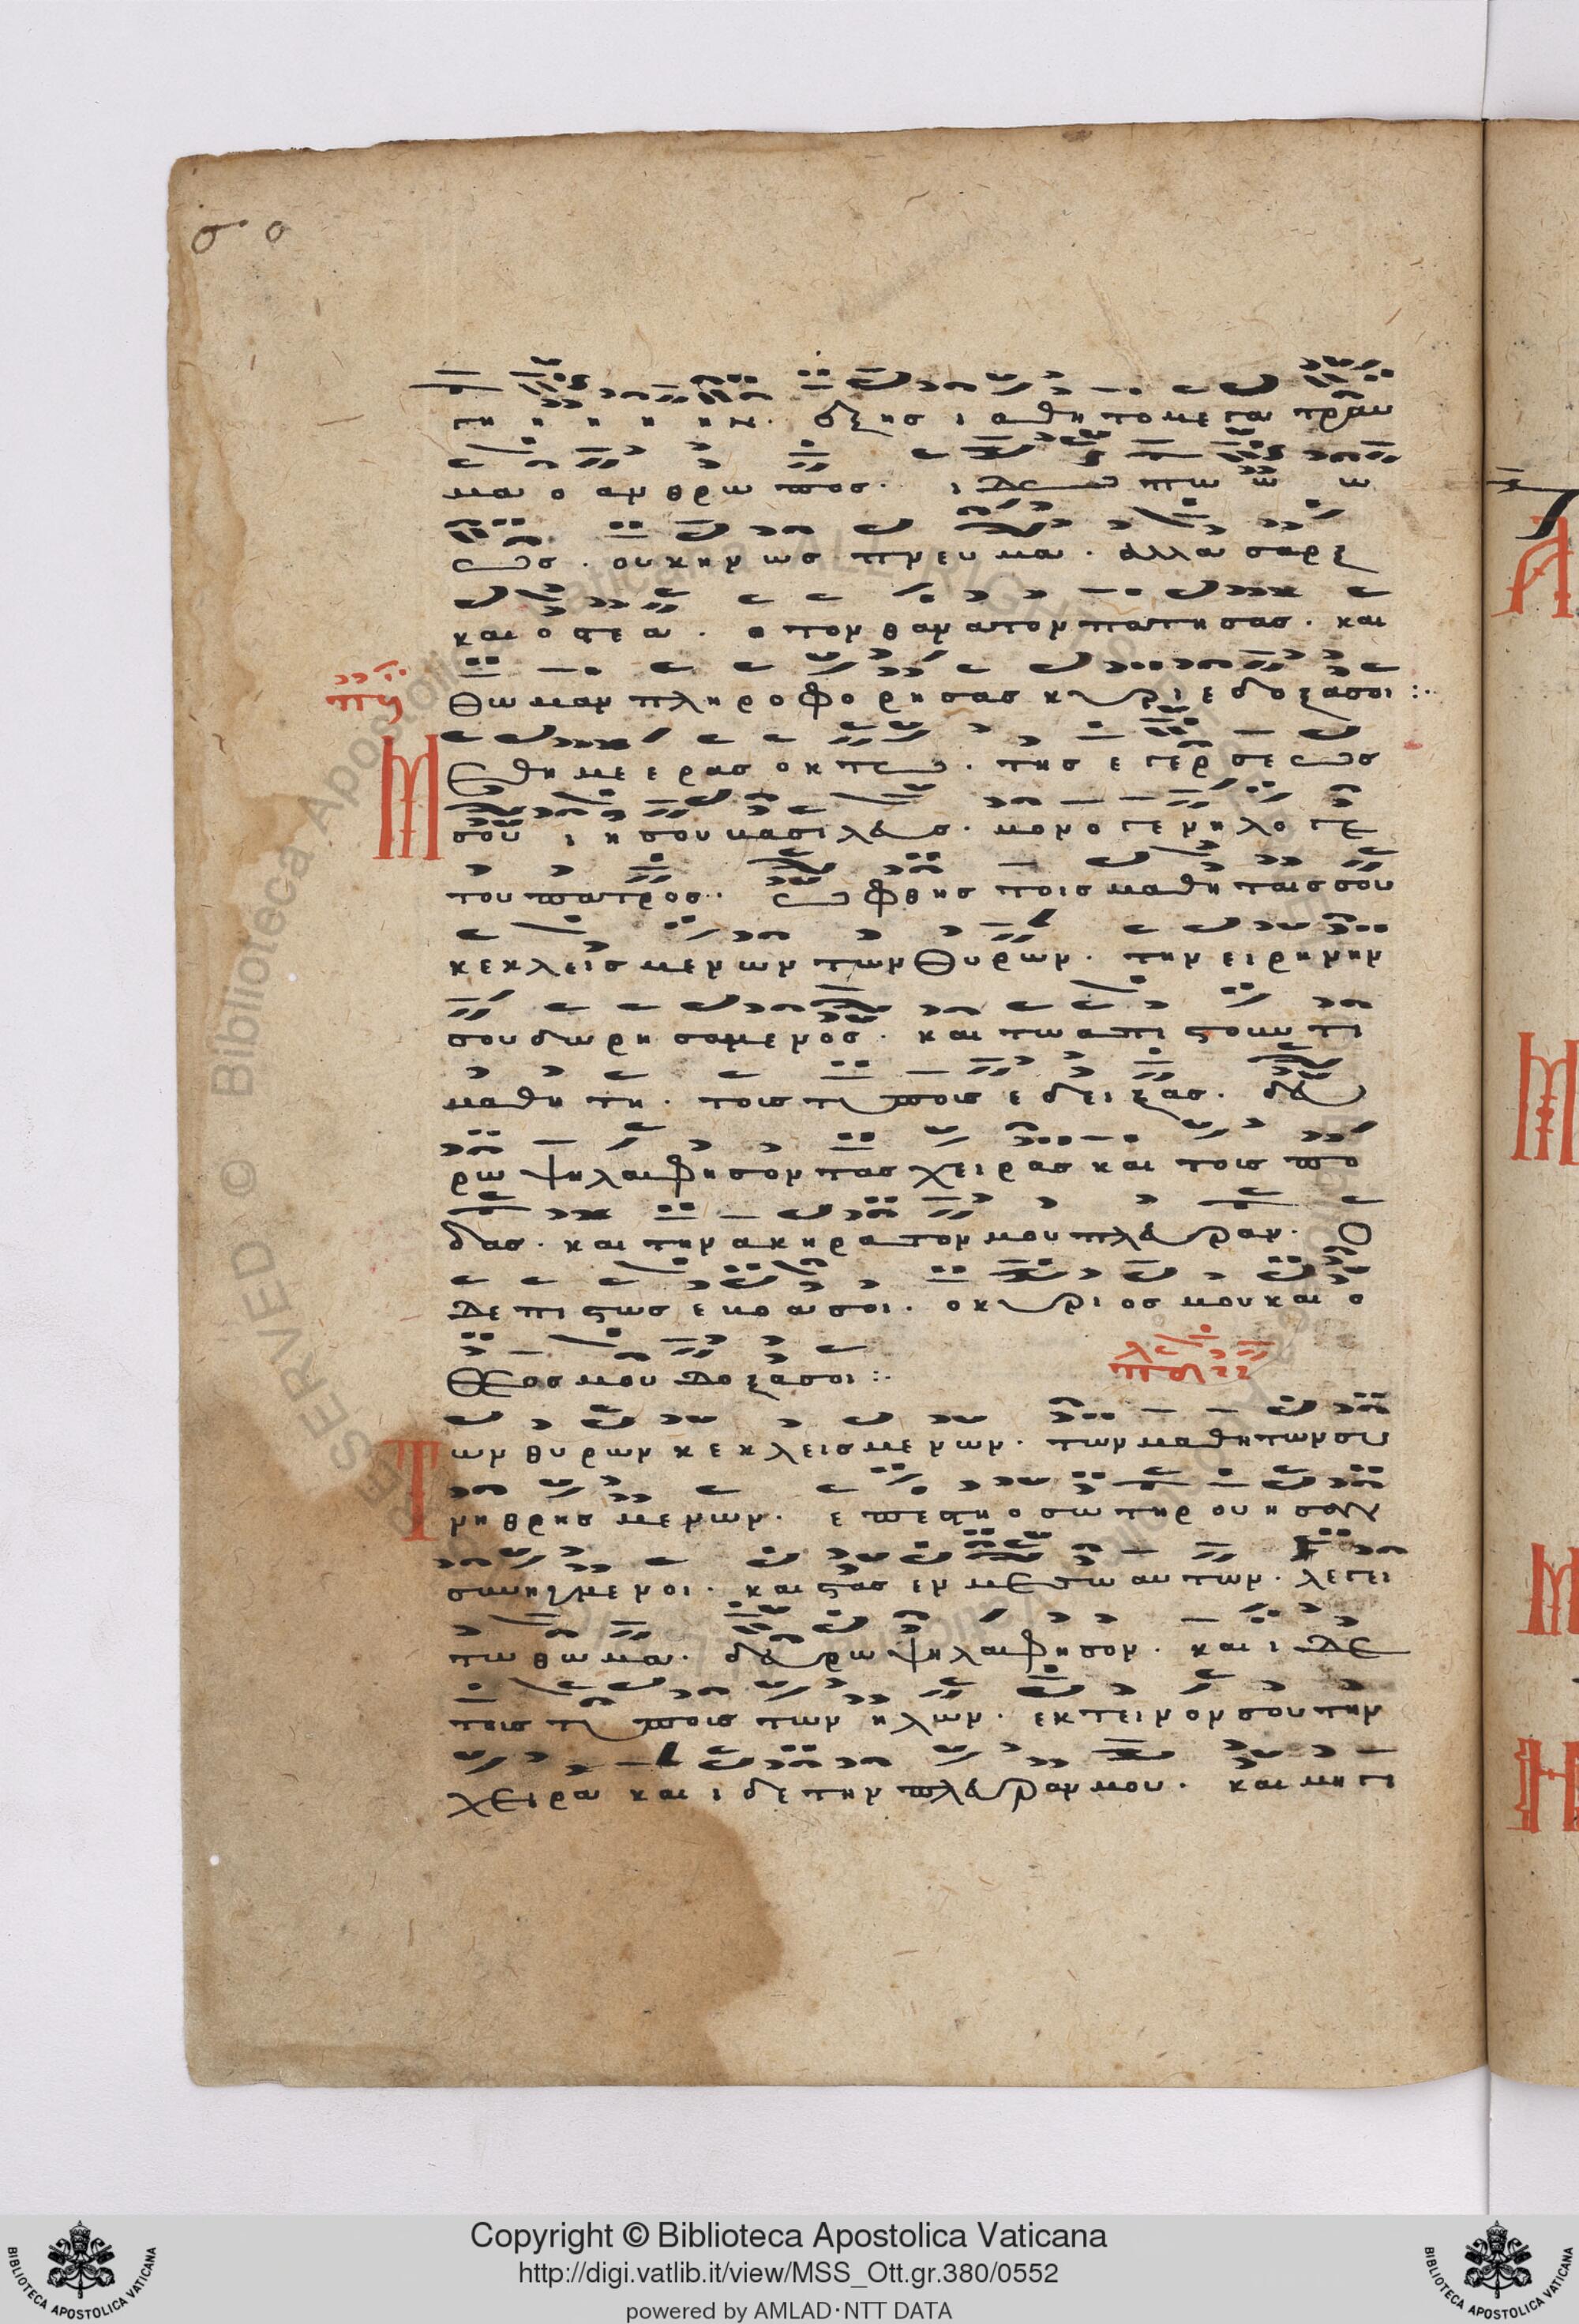 σο
τη η η η η η. δεξησιαθητομεταιτραυ
μαοανθρωπος. ιδεπωωω
ως. ουκημωσπνευμα. αλλασαρξ
καιοστεα. οτονθανατονπατησας. και
θωμανπληροφορησας κυριεδοξασοι:·
πγ
Μεθημεερασοκτω. τησεγερσεως
σουιησουβασιλευσ. μονογενηλογε
τουπατρος. ωφθηςτοισμαθηταισσου
κεκλεισμενωντωνθυρων. τηνειρηνην
σουδωρησαμενος. και τωαπιστουντι
μαθητη. τουστυπουσεδειξας. δευ
ρωψηλαφησοντασχειρασκαιτουσπο
δας. καιτηνακηρατονμουπλευραν. Ο
δεπιστωσεβοασοι. οκυριοσμουκαιο
θεοσμουδοξασοι:·
Τωνθυρωνκεκλεισμενων. τωνμαθητωνσυ
νηθρησμενων. επεστηοσωτηρουησαν
συνηγμενοι. καιστασενμεσωαυτων. λεγει
τωθωμα. δευρωψηλαφησον. καιιδε
τουστυπουστωνηλων. εκτεινονσουτην
χειρακαιιδετηνπλευρανμου. καιμηγι
Copyright © Biblioteca Apostolica Vaticana
http://digi.vatlib.it/view/MSS_Ott.gr.380/0552
powered by AMLAD·NTT DATA
BIBLIOTECA APOSTOLICA VATICANA
BIBLIOTECA APOSTOLICA VATICANA